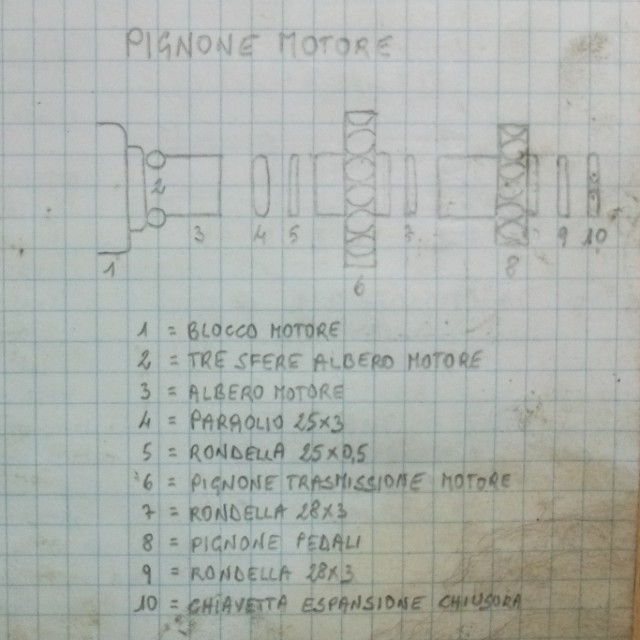 PIGNONE MOTORE
2
3 4 5 7 9 10
1 6 8
1 = BLOCCO MOTORE
2 = TRE SFERE ALBERO MOTORE
3 = ALBERO MOTORE
4 = PARAOLIO 25x3
5 = RONDELLA 25x0,5
6 = PIGNONE TRASMISSIONE MOTORE
7 = RONDELLA 28x3
8 = PIGNONE PEDALI
9 = RONDELLA 28x3
10 = CHIAVETTA ESPANSIONE CHIUSURA